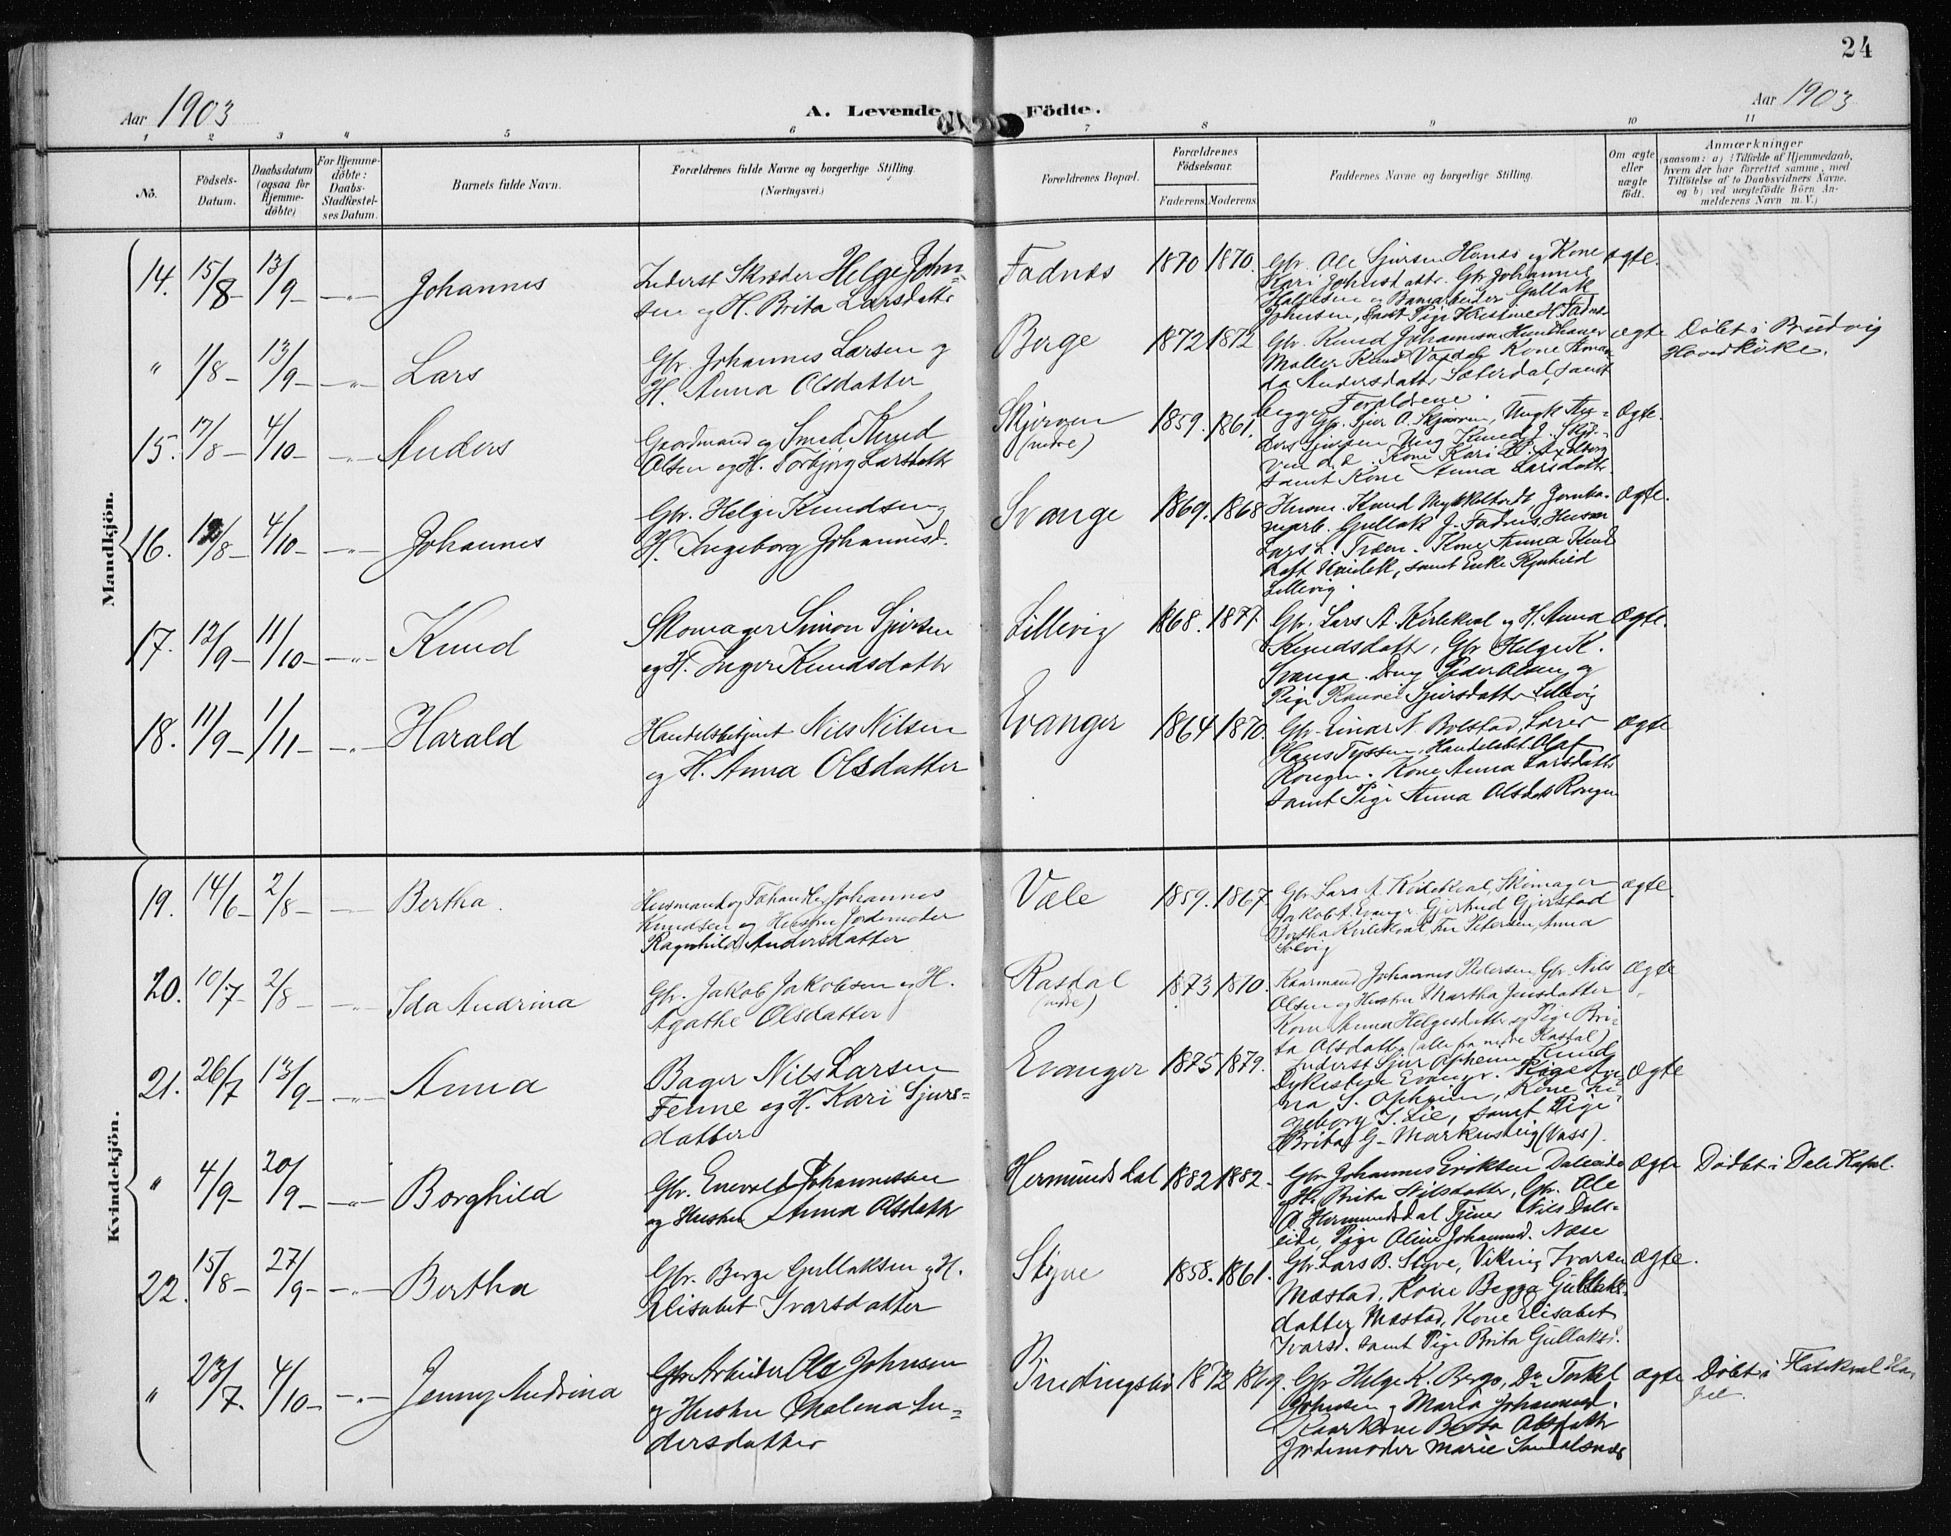 24
Aar 1903
A. Levende Födte.
Aar 1903
1 2 3 4 5 6 7 8 9 10 11
No.
Födsels-
Datum.
Daabsdatum
(ogsaa for
Hjemme-
döbte)
For Hjemme-
döbte:
Daabs-
Stadfæstel-
ses Datum.
Barnets fulde Navn.
Forældrenes fulde Navne og borgerlige Stilling.
(Næringsvei.)
Forældrenes Bopæl.
Forældrenes
Födselsaar.
Faderens. Moderens.
Faddernes Navne og borgerlige Stilling.
Om ægte
eller
uægte
födt.
Anmærkninger
(saasom: a) i Tilfælde af Hjemmedaab,
hvem der har forrettet samme, med
Tilföielse af to Daabsvidners Navne.
og b) ved uægtefödte Börn An-
melderens Navn m. V.)
Mandkjön.
14. 15/8 13/9 Johannes
Inderst Skræder Helge John-
sen og H. Brita Larsdatter
Fadnæs 1870 1870.
Gbr. Ole Sjursen Hernes og Kone
Kari Johnsdatter. Gbr Johannes
Helgesen og Banearbeider Gullak
Johnsen, samt Pige Kristine H. Fadnæs
ægte.
" 1/8 13/9 Lars
Gbr. Johannes Larsen og
H. Anna Olsdatter
Berge 1872 1872
Gbr. Knud Johannesen Hundhamer
Møller Knud Vaxdal, Kone Aman-
da Andersdatter Sæterdal, samt
begge Forældrene.
ægte
Döbt i Brudvig
Hovedkirke.
15. 17/8 4/10 Anders
Gaardmand og Smed Knud
Olsen og H. Torbjörg Larsdatter
Skjerven
(nedre)
1859. 1861.
Gbr. Sjur A. Skjerven, Ungk. An-
ders Sjursen
samt Kone Anna Larsdatter
Ægte.
16. /8 4/10 Johannes
Gbr. Helge Knudsen og
H. Ingeborg Johannesd.
Svange 1869. 1868
Husm. Knud Mykkeltvedt, Jernba-
nearb. Gullak J. Fadnes, Husm
Lars L. Træen. Kone Anna Knud
datt , samt Enke Rgnhild
Lillevig.
Ægte.
17. 12/9 11/10 Knud
Skomager Simon Sjursen
og H. Inger Knudsdatter
Lillevig 1868. 1877.
Gbr. Lars A. Kirlekval og H. Anna
Knudsdatter, Gbr Helge K.
Svange. Dreng Peder Olsen og
Pige Ranvei Sjursdatter Lillevig
Ægte.
18. 11/9 1/11 Harald
Handelsbetjent Nils Nilsen
og H. Anna Olsdatter
Evanger 1864 1870.
Gbr. Einar N. Bolstad, Lærer
Hans Tyssen, Handelsbet. Olaf
Rongen. Kone Anna Larsdatter
samt Pige Anna Olsdatt Rongen
Ægte
Kvindekjön.
19. 14/6 2/8 Bertha.
Husmand og Johannes
Knudsen og Hustru Jordmoder
Ragnhild Andersdatter
Væle 1859. 1867.
Gbr Lars A. Kirlekval, Skomager
Jakob A. Evanger Gjertrud Gjerstad
Bertha Kirlekval Fru Petersen, Anna
Solvig
ægte
20. 10/7 2/8 Ida Andrina
Gbr. Jakob Jakobsen og H.
Agathe Olsdatter
Rasdal
(nedre)
1873 1870.
Kaarmand Johannes Pedersen, Gbr. Nils
Olsen og Hustru Martha Jensdatter
Kone Anna Helgesdatter og Pige Bri-
ta Olsdatter (alle fra nedre Rasdal)
Ægte
21. 26/7 13/9 Anna
Bager Nils Larsen
Fenne og H. Kari Sjurs-
datter
Evanger 1875 1879.
Inderst Sjur Opheim, Knud
Dykesteen Evanger. Pige An-
na S. Opheim, Kone In-
geborg I. Lie, samt Pige
Brita G. Markusteig (Voss).
Ægte
" 4/9 20/9 Borghild
Gbr. Enevald Johannessen
og Hustru Anna Olsdatter
Hermundsdal 1882 1882.
Gbr Johannes Eriksen Daleide
og H. Brita Nilsdatter, Gbr. Ole
A. Hermundsdal Tjener Nils Dals-
eide, Pige Oline Johannesd. Næse
Ægte
Döbt i Dale Kapel.
22. 15/8 27/9 Bertha
Gbr. Berge Gullaksen og H.
Elisabet Ivarsdatter
Styve 1858. 1861.
Gbr. Lars B. Styve, Viking Ivarsen
Mæstad, Kone Begga Gullaks-
datter Mæstad, Kone Elisabet
Ivarsd. samt Pige Brita Gullaksd.
ægte.
" 23/7 4/10 Jenny Andrina
Gbr Arbeider Ole Johnsen
og Hustru Malena An-
dersdatter
1872 1869.
Gbr Helge K. Berge, Do Torkel
Johnsen og Maria Johannesd.
Kaarkone Berta Olsdatter
Jordemoder Marie
ægte
Döbt i Flatekval Ka-
pel